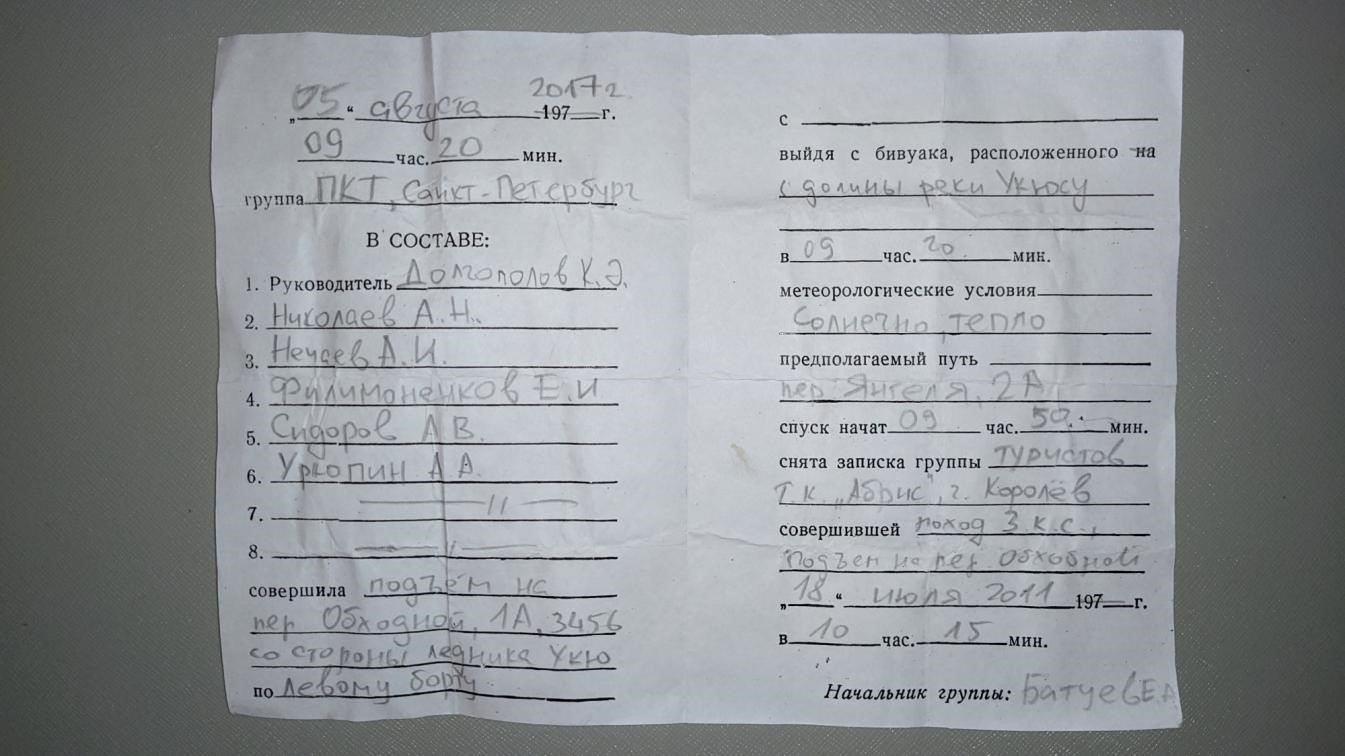 „05“ августа 2017г. 197 г.
09 час. 20 мин.
группа ПКТ, Санкт-Петербург
В СОСТАВЕ:
1. Руководитель Долгополов К.Э.
2. Николаев А.Н.
3. Нечаев А.И.
4. Филимоненков Е.И
5. Сидоров А В.
6. Уркопин А А.
7. —— 11 ——
8.
совершила подъём на
пер Обходной, 1А, 3456
со стороны ледника Укю
по левому борту
с
выйдя с бивуака, расположенного на
с долины реки Укюсу
в 09 час. 20 мин.
метеорологические условия
Солнечно, тепло
предполагаемый путь
пер Янгеля, 2А
спуск начат 09 час. 50 мин.
снята записка группы туристов
Т.к. „Абрис", г. Королёв
совершившей поход 3 к.с.,
Подъем на пер. Обходной
„18“ июля 2011 197 г.
в 10 час. 15 мин.
Начальник группы: Батуев Е.А